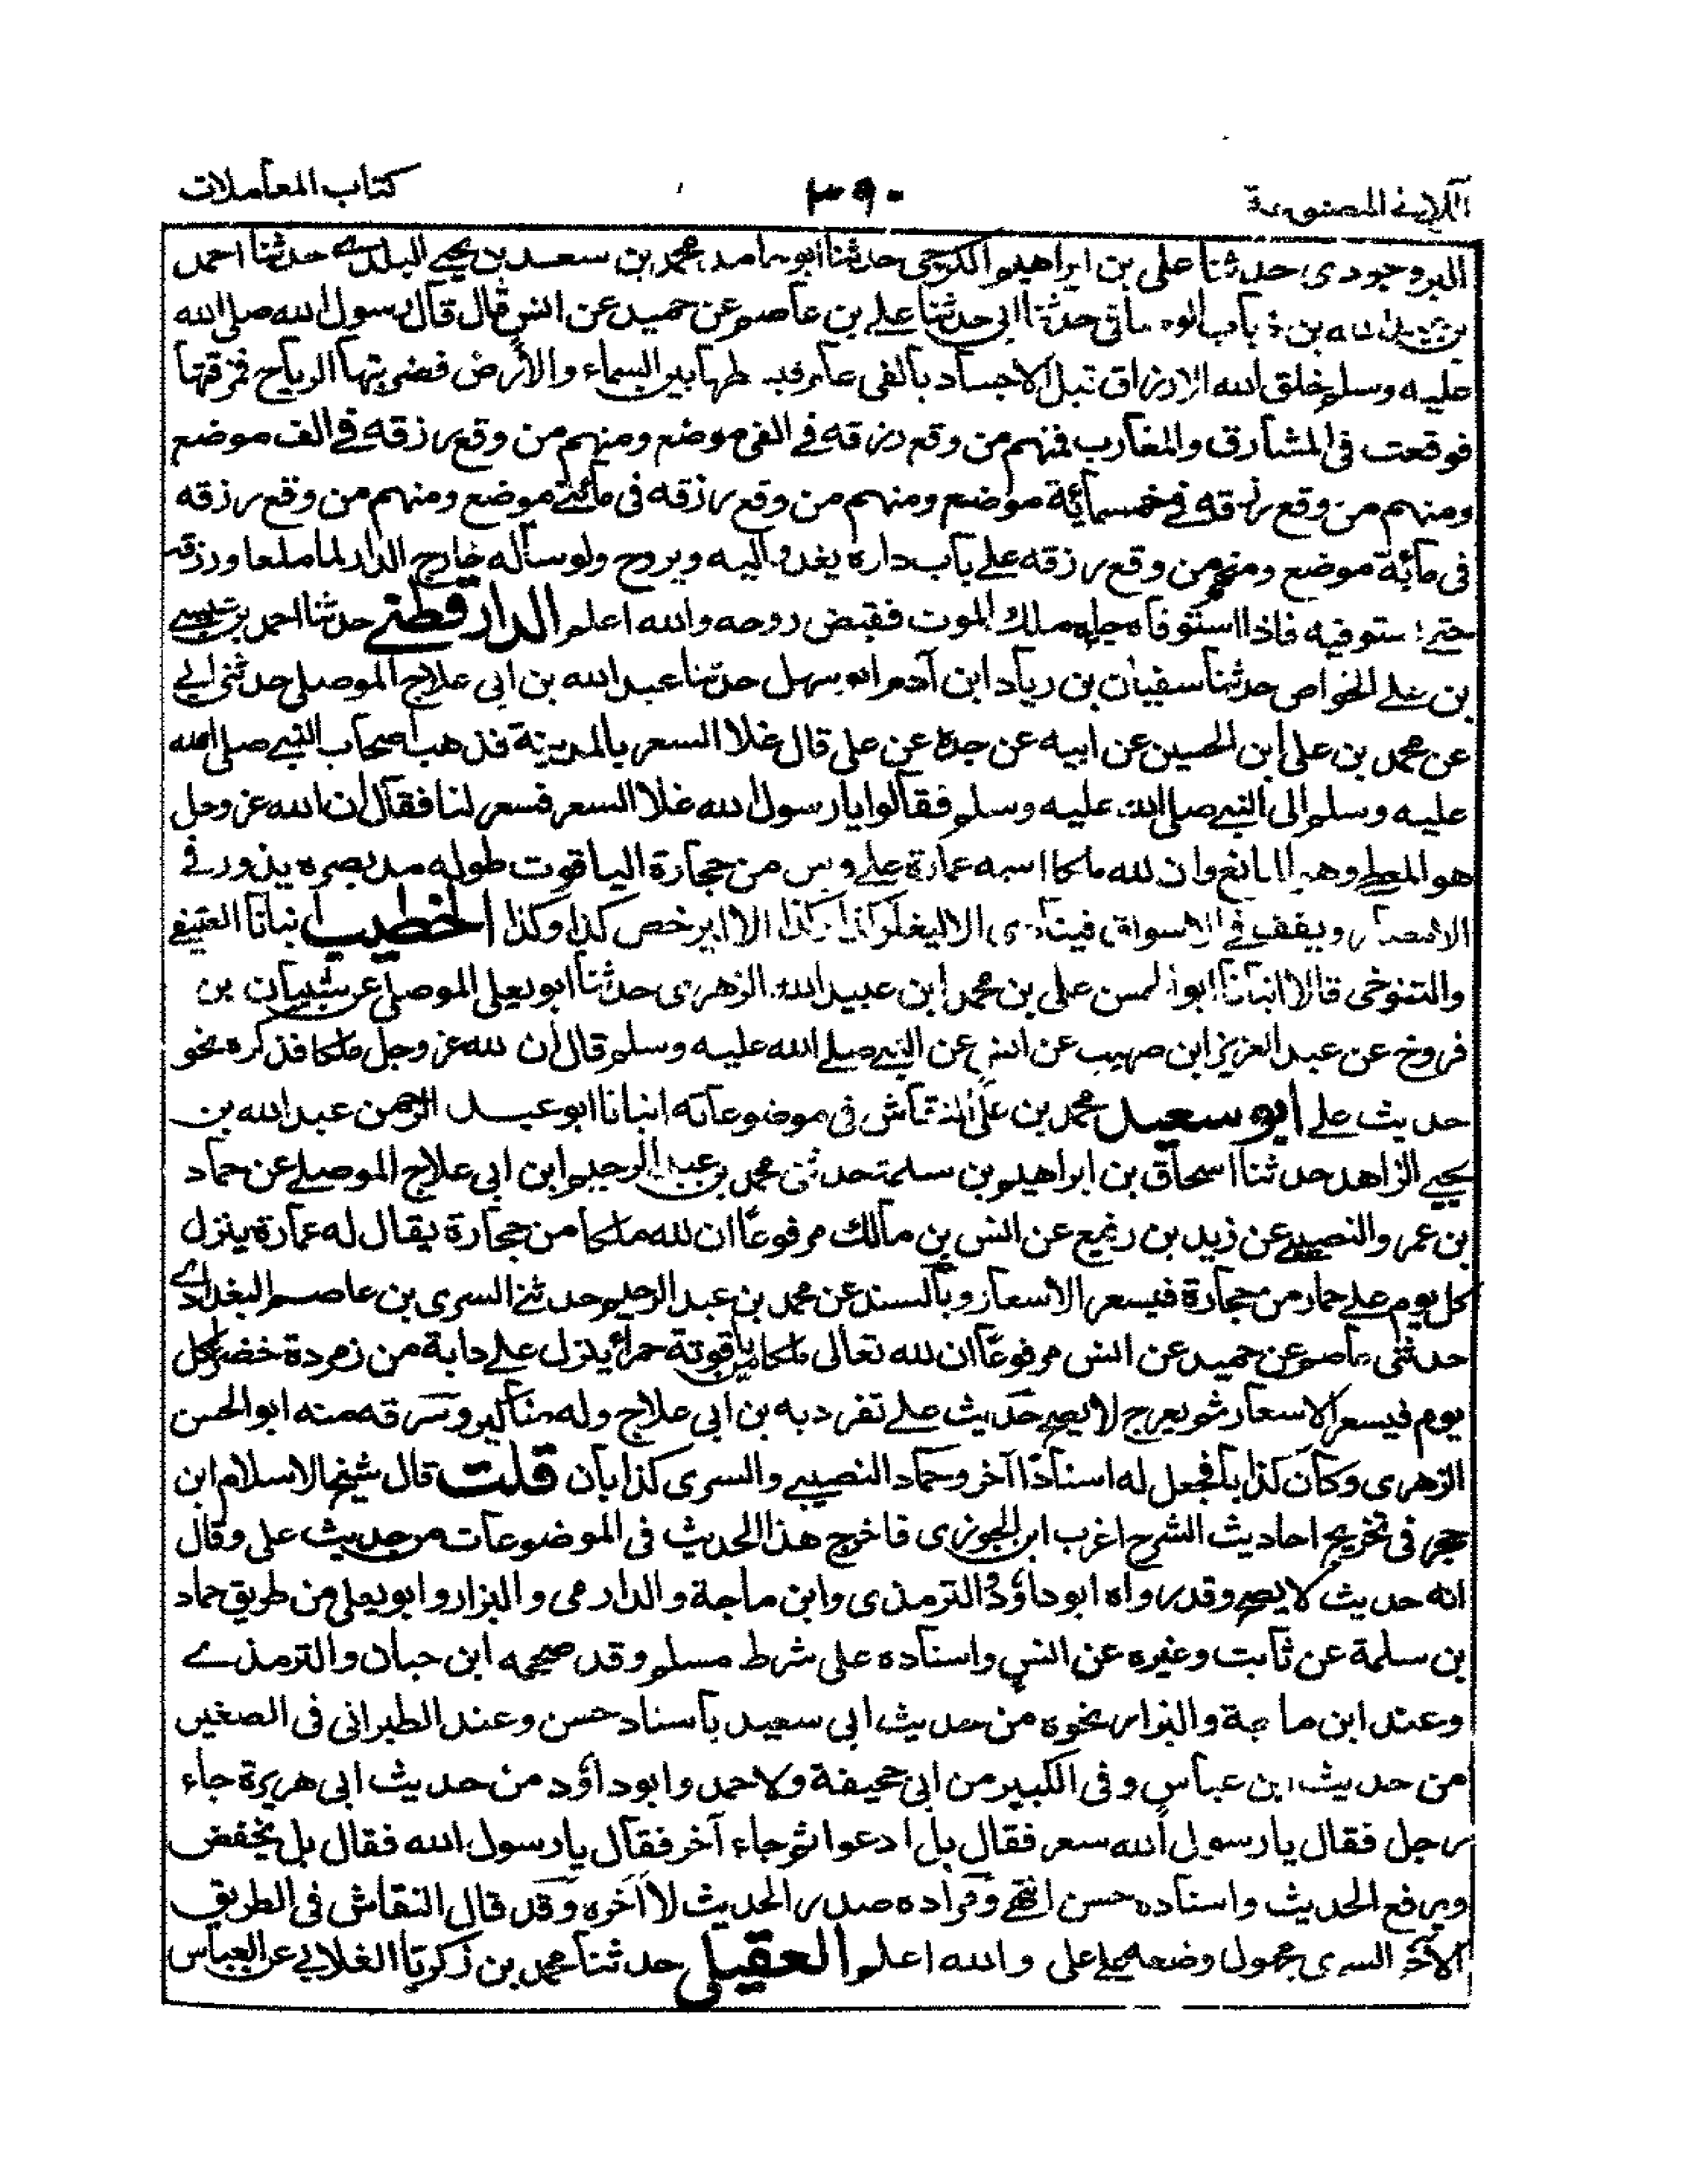 اللآلئ المصنوعة
٣٩٠
كتاب المعاملات
البروجودى حدثنا على بن ابراهيم الكرجى حدثنا ابو حامد محمد بن سعد بن يحيى البلدى حدثنا احمد
بن عبد الله بن حدثنا ابى حدثنا على بن عاصم عن حميد عن انس قال قال رسول الله صلى الله
عليه وسلم خلق الله الارزاق قبل الاجساد بالفى عام فبسطها بين السماء والأرض فضربتها الرياح فمزقتها
فوقعت فى المشارق والمغارب فمنهم من وقع رزقه فى الفى موضع ومنهم من وقع رزقه فى الف موضع
ومنهم من وقع رزقه فى خمسمائة موضع ومنهم من وقع رزقه فى مائتى موضع ومنهم من وقع رزقه
فى مائة موضع ومنهم من وقع رزقه على باب داره يغدو اليه ويروح ولو سأله خارج الدار لما ورزقه
حتى يستوفيه فاذا استوفاه جاءه ملك الموت فقبض روحه والله اعلم الدارقطنى حدثنا احمد بن عيسى
بن على الخواص حدثنا سفيان بن زياد ابن آدم ابو سهل حدثنا عبد الله بن ابى علاج الموصلى حدثنى ابى
عن محمد بن على ابن الحسين عن ابيه عن جده عن على قال غلا السعر بالمدينة فذهب اصحاب النبى صلى الله
عليه وسلم الى النبى صلى الله عليه وسلم فقالوا يا رسول الله غلا السعر فسعر لنا فقال ان الله عز وجل
هو المعطى وهو المانع وان لله ملكا اسمه عمارة على فرس من حجارة الياقوت طوله مد بصره يدور فى
الامصار ويقف فى الاسواق فينادى الا ليغلو كذا وكذا الا ليرخص كذا وكذا الخطيب انبأنا العتيقى
والتنوخى قالا انبأنا ابو الحسن على بن محمد ابن عبيد الله الزهرى حدثنا ابو يعلى الموصلى عن شيبان بن
فروخ عن عبد العزيز ابن صهيب عن انس عن النبى صلى الله عليه وسلم قال ان لله عز وجل ملكا فذكره نحو
حديث على ابو سعيد محمد بن على النقاش فى موضوعاته انبانا ابو عبد الرحمن عبد الله بن
يحيى الزاهد حدثنا اسحاق بن ابراهيم بن سلمة حدثنى محمد بن عبد الرحيم ابن ابى علاج الموصلى عن حماد
بن عمرو النصيبى عن زيد بن رفيع عن انس بن مالك مرفوعًا ان لله ملكا من حجارة يقال له عمارة ينزل
كل يوم على حمار من حجارة فيسعر الاسعار وبالسند عن محمد بن عبد الرحيم حدثنى السرى بن عاصم البغدادى
حدثنى عاصم عن حميد عن انس مرفوعًا ان لله تعالى ملكا من ياقوتة حمراء ينزل على دابة من زمردة خضراء كل
يوم فيسعر الاسعار ثم يعرج لا يصح حديث على تفرد به بن ابى علاج وله مناكير وسرقه منه ابو الحسن
الزهرى وكان كذابا فجعل له اسنادًا آخر وحماد النصيبى والسرى كذابان قلت قال شيخ الاسلام ابن
حجر فى تخريج احاديث الشرح اغرب ابن الجوزى فاخرج هذا الحديث فى الموضوعات من حديث على وقال
انه حديث لا يصح وقد رواه ابو داؤد والترمذى وابن ماجة والدارمى والبزار وابو يعلى من طريق حماد
بن سلمة عن ثابت وغيره عن انس واسناده على شرط مسلم وقد صححه ابن حبان والترمذى
وعند ابن ماجة والبزار نحوه من حديث ابى سعيد باسناد حسن وعند الطبرانى فى الصغير
من حديث ابن عباس وفى الكبير من ابى جحيفة ولاحمد وابو داؤد من حديث ابى هريرة جاء
رجل فقال يا رسول الله سعر فقال بل ادعوا ثم جاء آخر فقال يا رسول الله فقال بل يخفض
ويرفع الحديث واسناده حسن انتهى ومراده صدر الحديث لا آخره وقد قال النقاش فى الطريق
الآخر السرى مجهول وضعه على على والله اعلم العقيلى حدثنا محمد بن زكريا الغلابى عن العباس